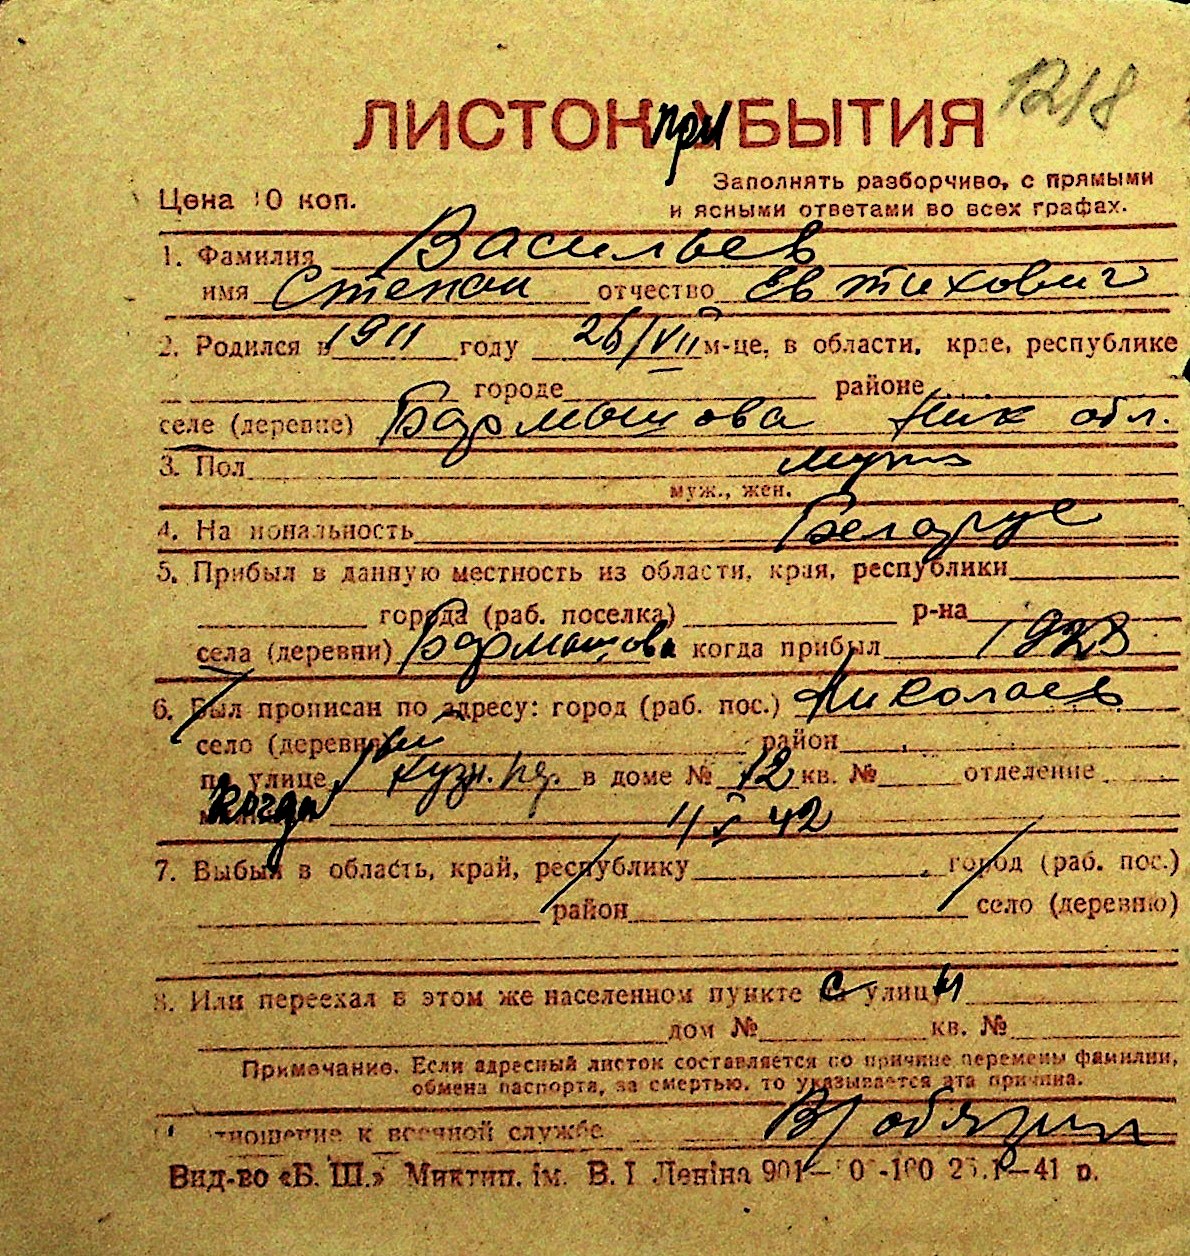 1218
ЛИСТОК при БЫТИЯ
Цена 10 коп.
Заполнять разборчиво, с прямыми
и ясными ответами во всех графах.
1. Фамилия Васильев
имя Степан отчество Евтихович
2. Родился в 1911 году 26/VII м-це, в области, крае, республике
городе районе
селе (деревне) Бармашова Ник обл.
3. Пол муж
муж., жен.
4. Национальность Беларус
5. Прибыл в данную местность из области, края, республики
города (раб. поселка) р-на
села (деревни) Бармашова когда прибыл 1928
6. Был прописан по адресу: город (раб. пос.) Николаев
село (деревня) район
по улице Кузн. пер. в доме № 12 кв. № отделение
когда 11 X 42
7. Выбыл в область, край, республику город (раб. пос.)
район село (деревню)
8. Или переехал в этом же населенном пункте с улицы
дом № кв. №
Примечание. Если адресный листок составляется по причине перемены фамилии,
обмена паспорта, за смертью, то указывается эта причина.
отношение к военной службе В/обязан
Вид-во «Б. Ш.» Миктип. ім. В. І Леніна 901 41 р.